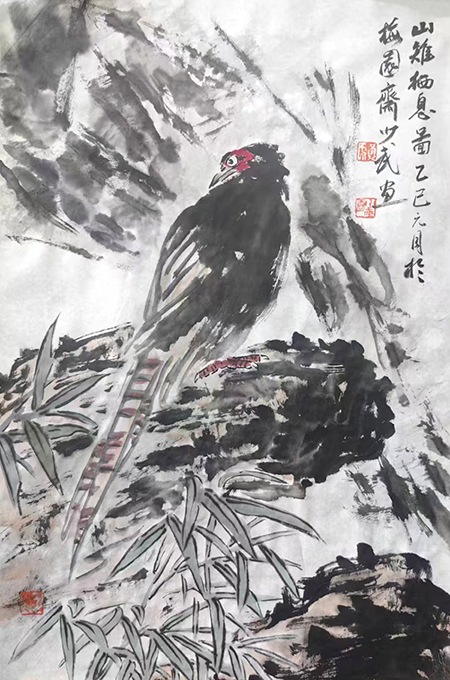 山雉栖息图乙巳元月於
梅园斋少武画